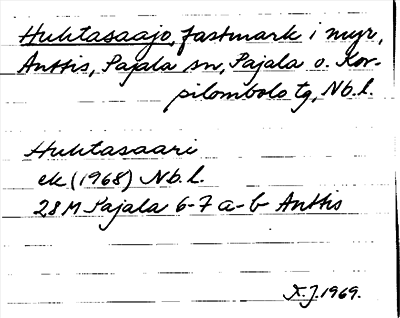 Huhtasaajo, fastmark i myr,
Anttis, Pajala sn, Pajala o. Kor-
pilombolo tg, Nb.l.
Huhtasaari
ek (1968) Nb.l.
28M Pajala 6-7 a-b Anttis
X.J. 1969.